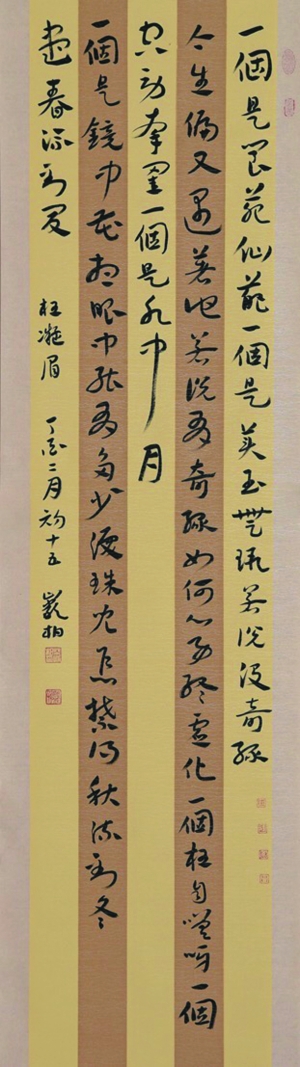 一個是閬苑仙葩一個是美玉無瑕若說沒奇緣
今生偏又遇著他若說有奇緣如何心事終虛化一個枉自嗟呀一個
空勞牽掛一個是水中月
一個是鏡中花想眼中能有多少淚珠兒怎禁得秋流到冬
盡春流到夏 枉凝眉 丁酉二月初十五